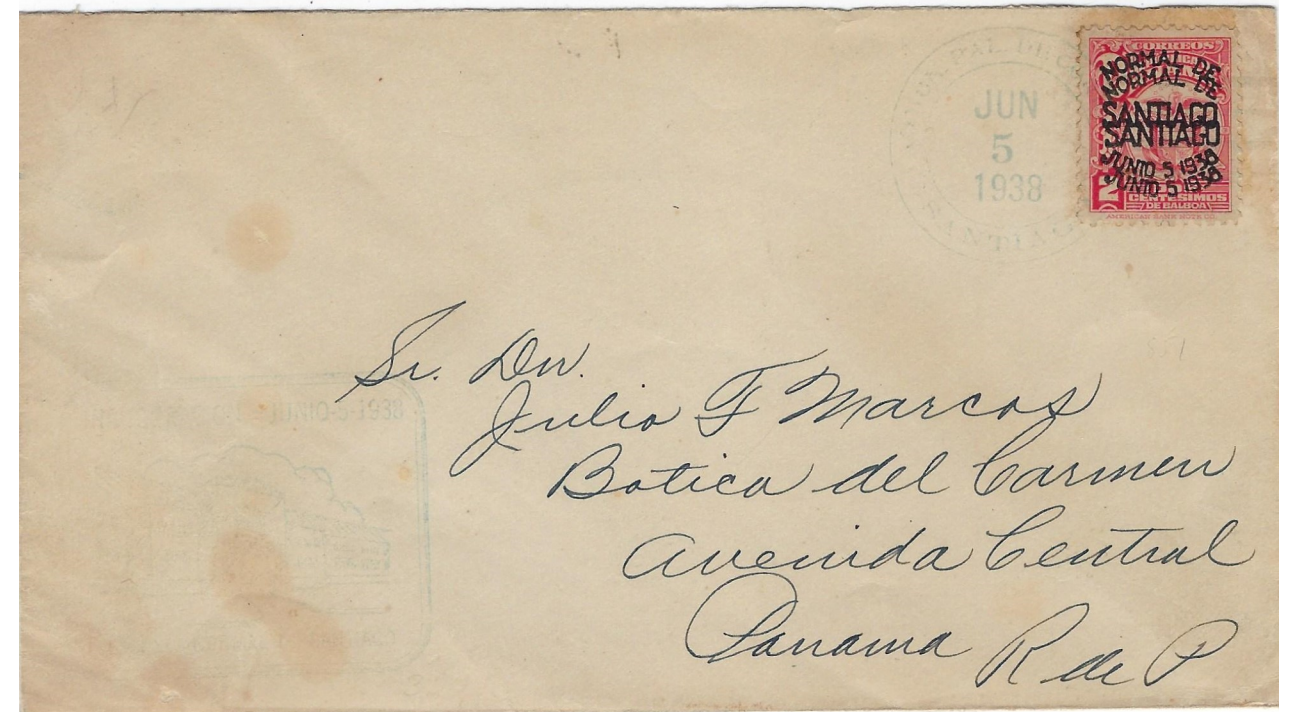 JUN
5
1938
SANTIAGO
CORREOS
NORMAL DE
NORMAL DE
SANTIAGO
SANTIAGO
JUNIO 5 1938
JUNIO 5 1938
2 CENTESIMOS
DE BALBOA
AMERICAN BANK NOTE CO.
Sr. Dn.
Julio F Marcos
Botica del Carmen
Avenida Central
Panama R de P
JUNIO-5-1938